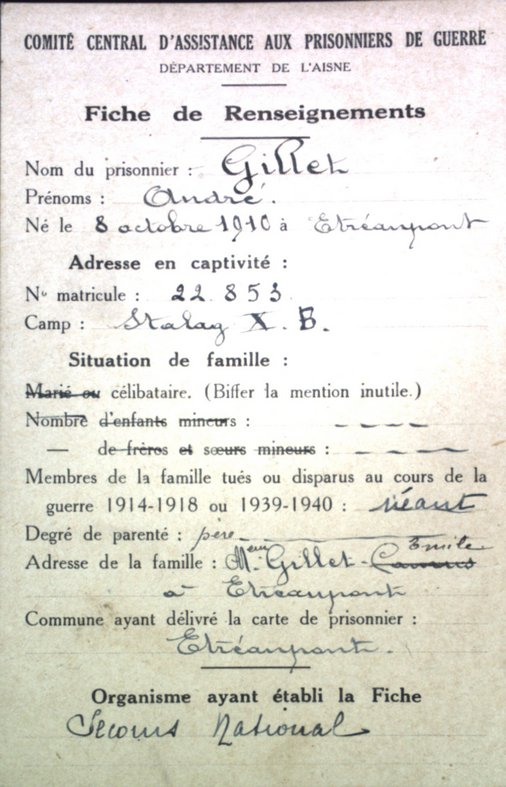 COMITÉ CENTRAL D'ASSISTANCE AUX PRISONNIERS DE GUERRE
DÉPARTEMENT DE L'AISNE
Fiche de Renseignements
Nom du prisonnier : Gillet
Prénoms : André.
Né le 8 octobre 1910 à Etréaupont
Adresse en captivité :
N° matricule : 22.853
Camp : Stalag X. B.
Situation de famille :
Marié ou célibataire. (Biffer la mention inutile.)
Nombre d'enfants mineurs : ----
— de frères et sœurs mineurs : ----
Membres de la famille tués ou disparus au cours de la
guerre 1914-1918 ou 1939-1940 : néant
Degré de parenté : père
Adresse de la famille : Mme Gillet Emile
à Etréaupont
Commune ayant délivré la carte de prisonnier :
Etréaupont.
Organisme ayant établi la Fiche
Secours National